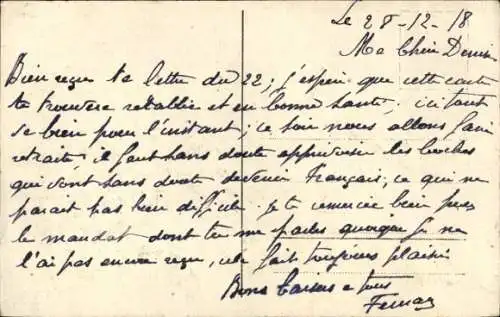 Le 28-12-18
Ma Chère Denise
Bien reçu ta lettre du 22; j'espère que cette carte
te trouvera rétablie et en bonne santé; ici tout
se bien pour l'instant; ce soir nous allons faire
retraite, il faut sans doute apprivoiser les boches
qui vont sans doute devenir Français; ce qui ne
parait pas bien difficile. Je te remercie bien pour
le mandat dont tu me parles quoique je ne
l'ai pas encore reçu, cela fait toujours plaisir
Bons baisers a tous
Fernan